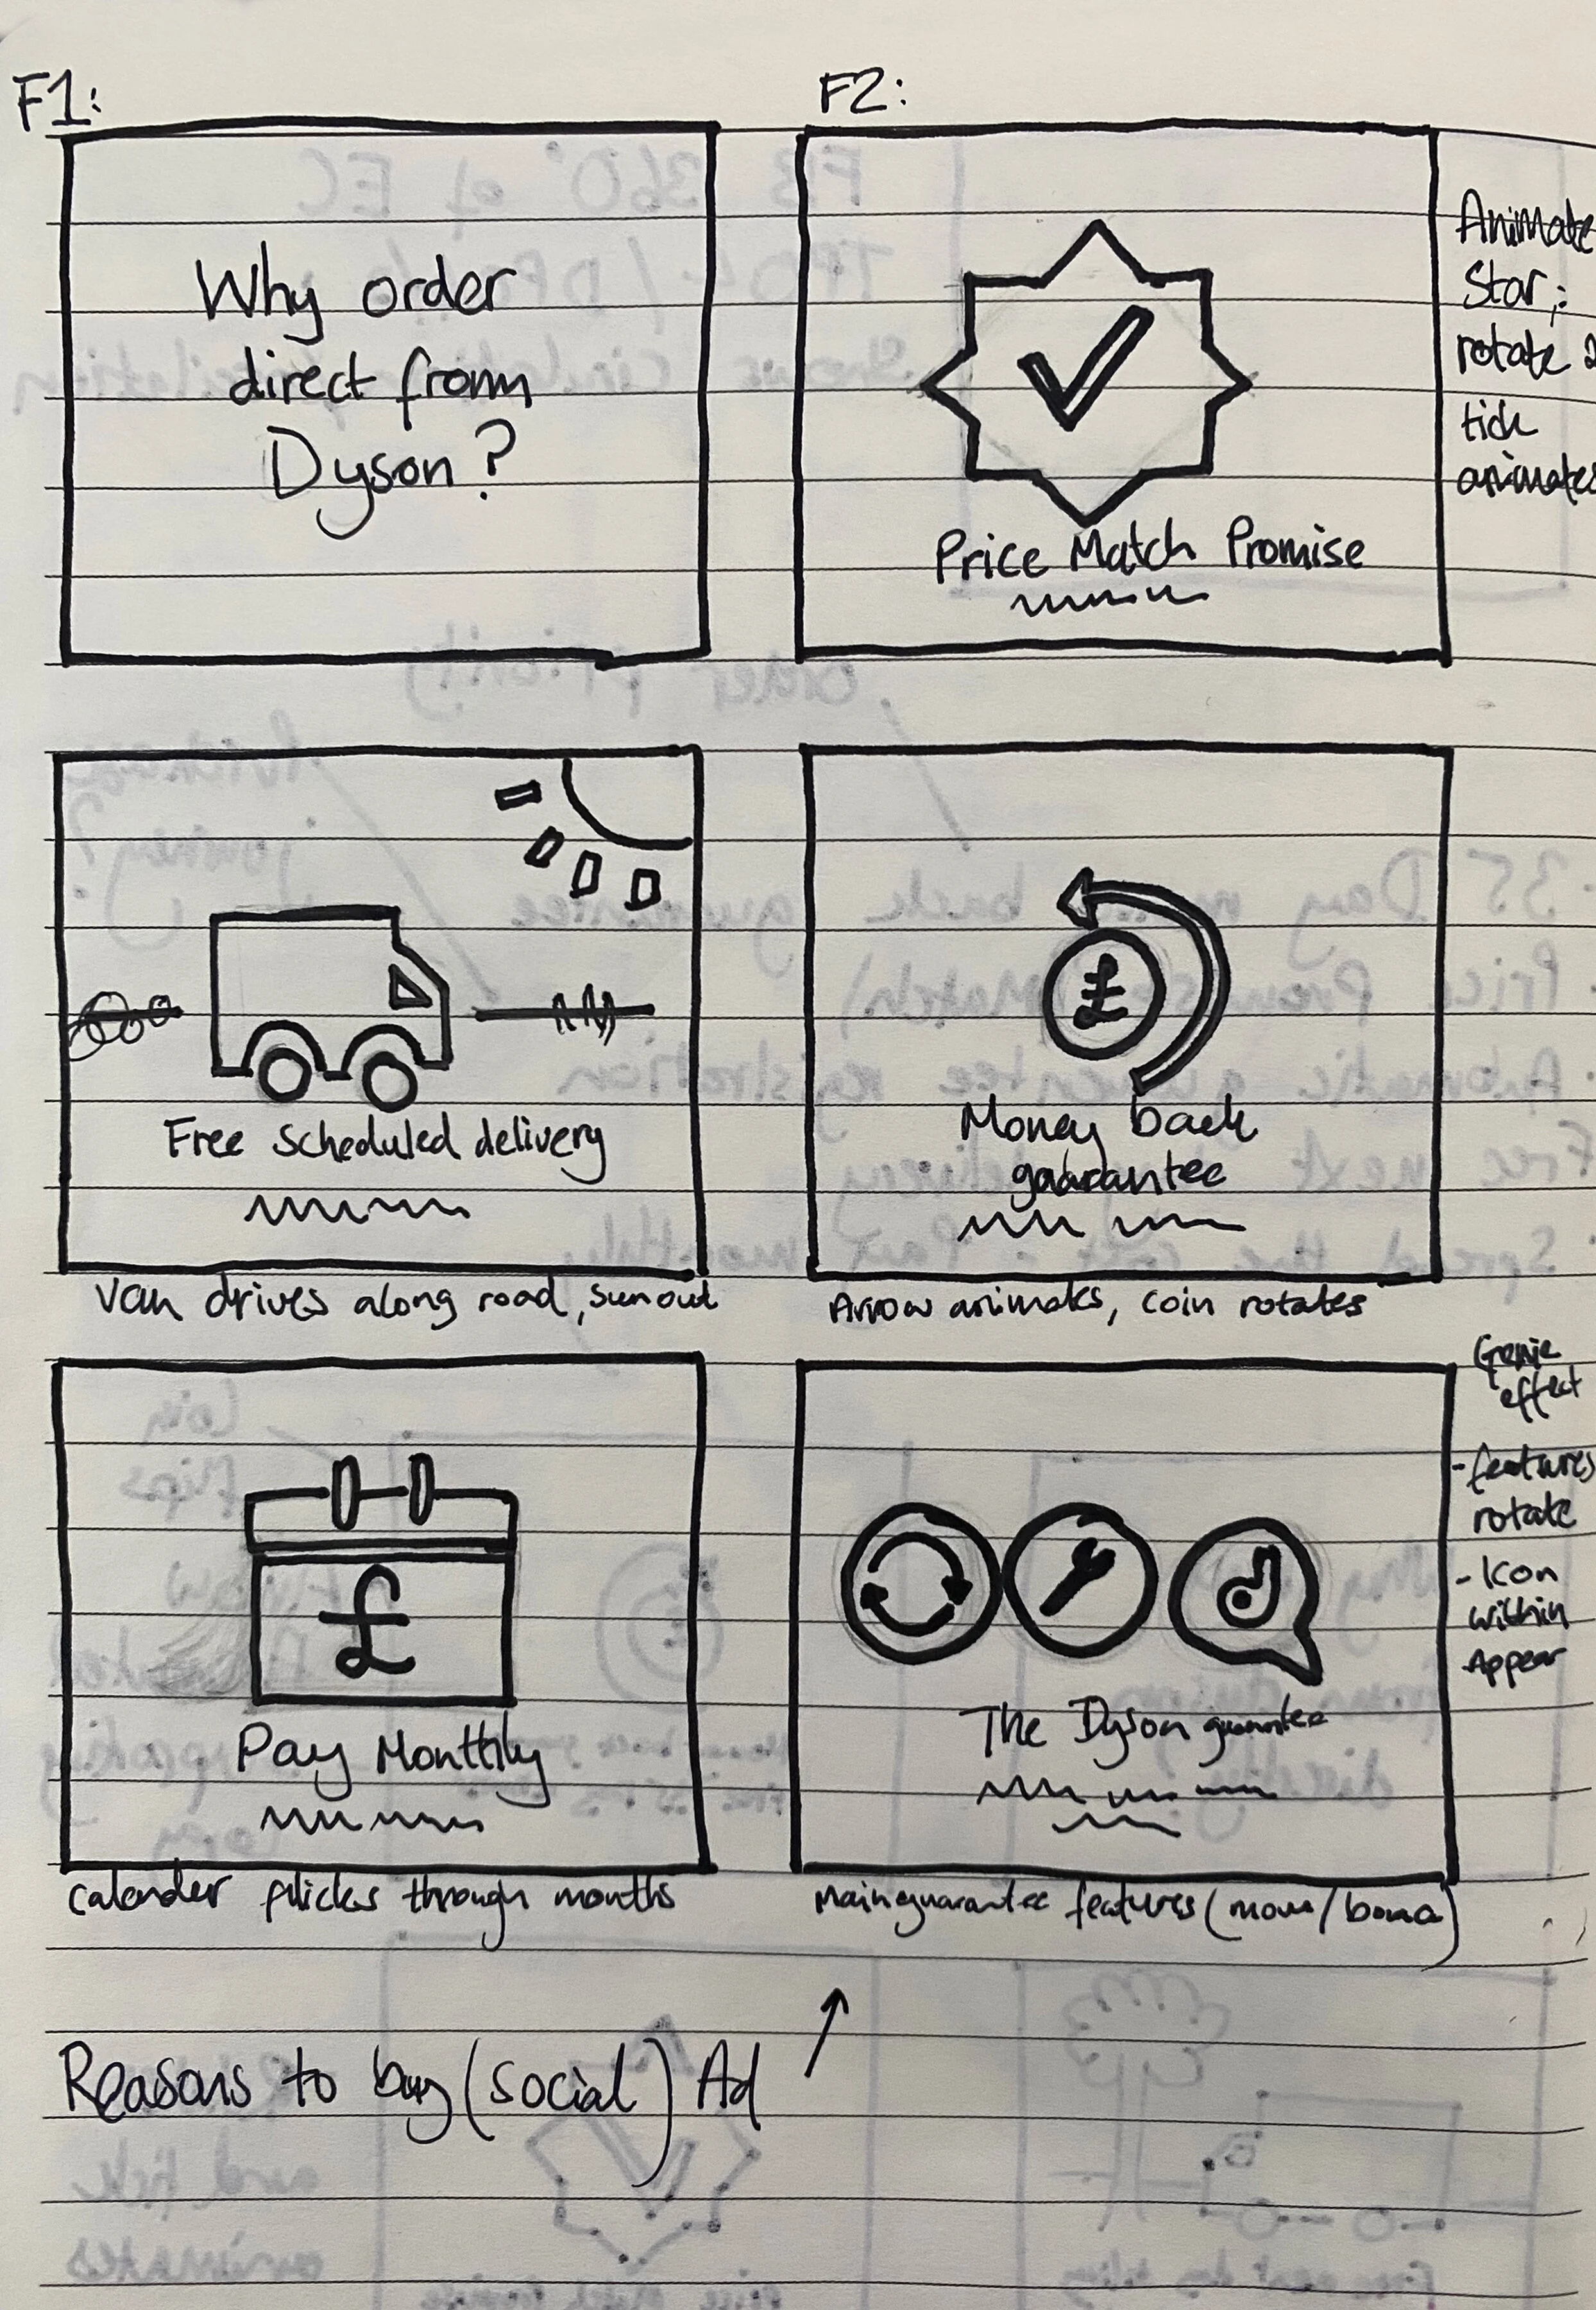 F1:
Why order
direct from
Dyson?
F2:
Price Match Promise
Animate
Star;
rotate
tick
animates
Free scheduled delivery
Van drives along road, sun out
£
Money back
guarantee
Arrow animates, coin rotates
£
Pay Monthly
Calender flicks through months
The Dyson guarantee
Main guarantee features (move/
Genie
effect
- features
rotate
- Icon
within
Appear
Reasons to buy (social) Ad